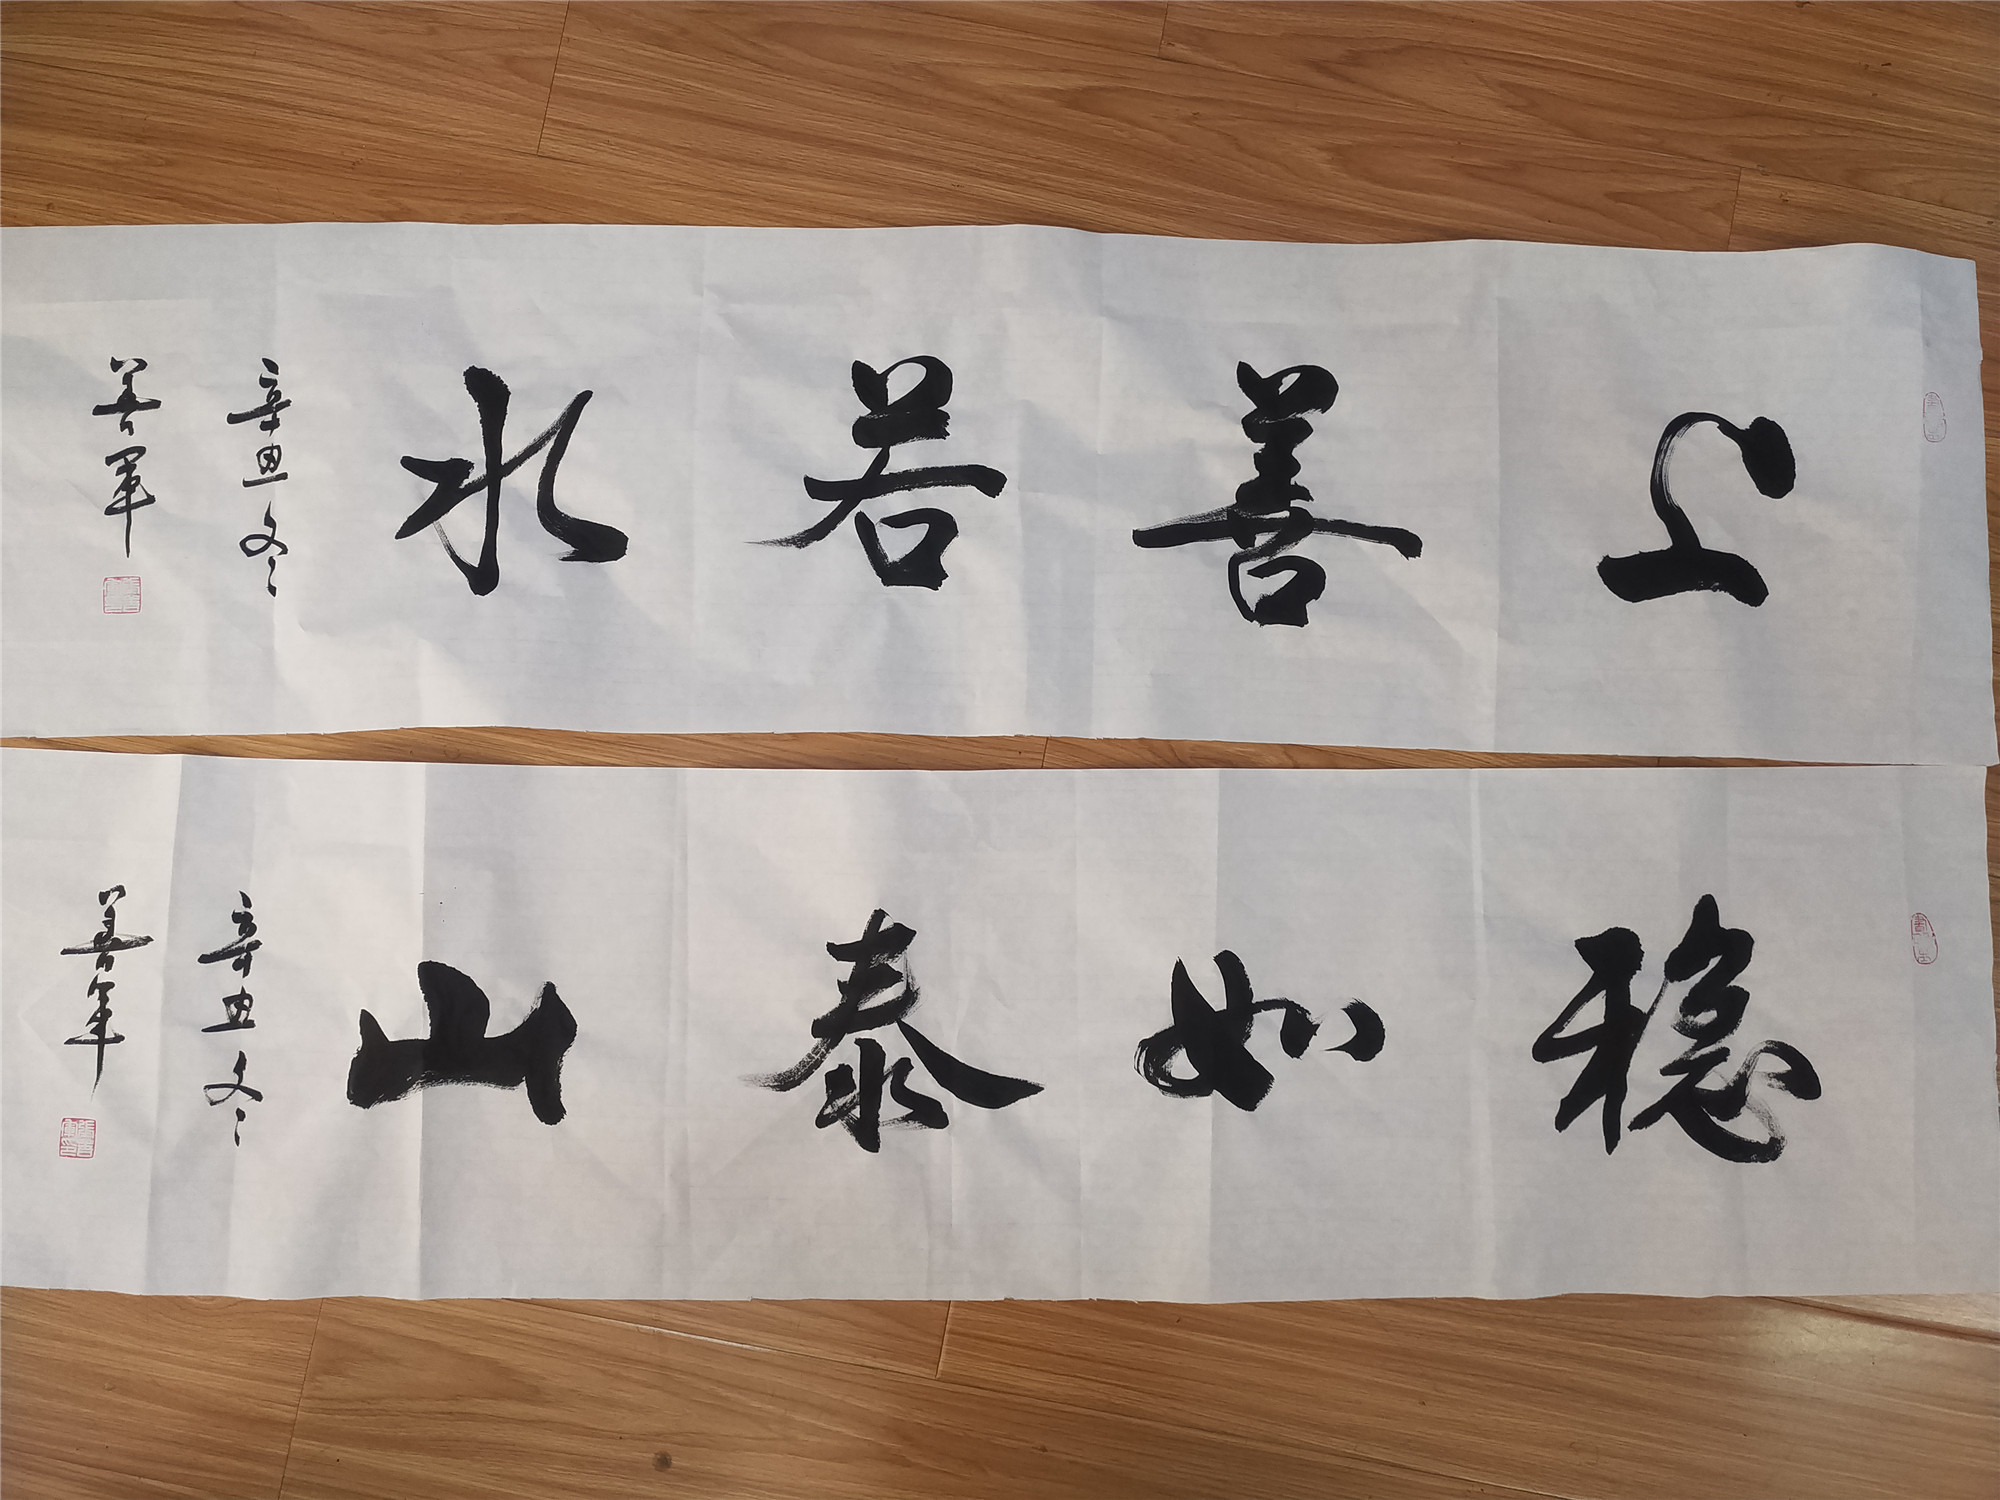 上善若水
辛丑冬
善军
稳如泰山
辛丑冬
善军